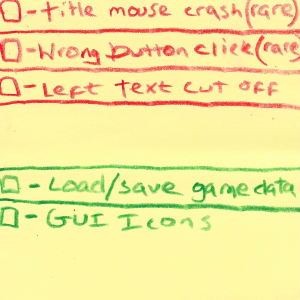 - Title mouse crash(rare)
- Wrong button click(rare
- Left Text cut off
- Load/save game data
- GUI Icons